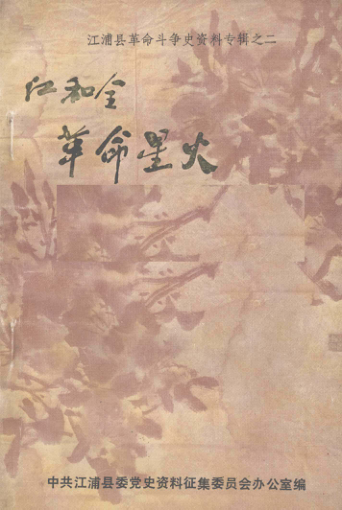 江浦县革命斗争史资料专辑之二
江和全
革命星火
中共江浦县委党史资料征集委员会办公室编